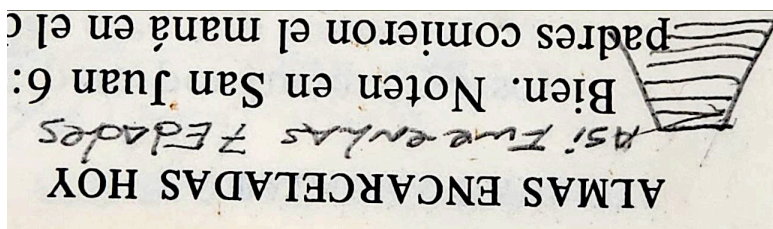 ALMAS ENCARCELADAS HOY
Asi Fue en las 7 Edades
Bien. Noten en San Juan 6:
padres comieron el maná en el d